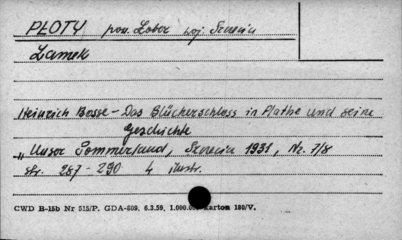 PŁOTY pow. Łobez woj. Szczecin
Zamek
Heinrich Bosse - Das Blücherschloss in Plathe und seine
Geschichte
„Unser Pommerland, Szczecin 1931, Nr. 7/8
str. 287 - 290 4 ilustr.
CWD B-15b Nr 515/P, GDA-809. 6.2.59, 1.000.0 karton 180/V.